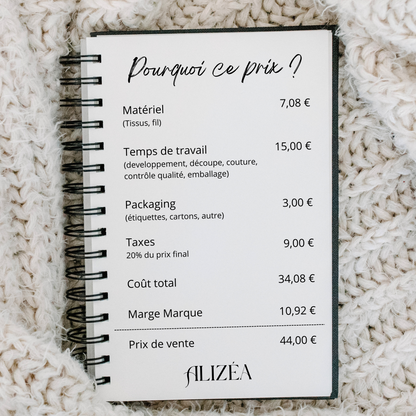 Pourquoi ce prix ?
Matériel 7,08 €
(Tissus, fil)
Temps de travail 15,00 €
(developpement, découpe, couture,
contrôle qualité, emballage)
Packaging 3,00 €
(étiquettes, cartons, autre)
Taxes 9,00 €
20% du prix final
Coût total 34,08 €
Marge Marque 10,92 €
Prix de vente 44,00 €
ALIZÉA